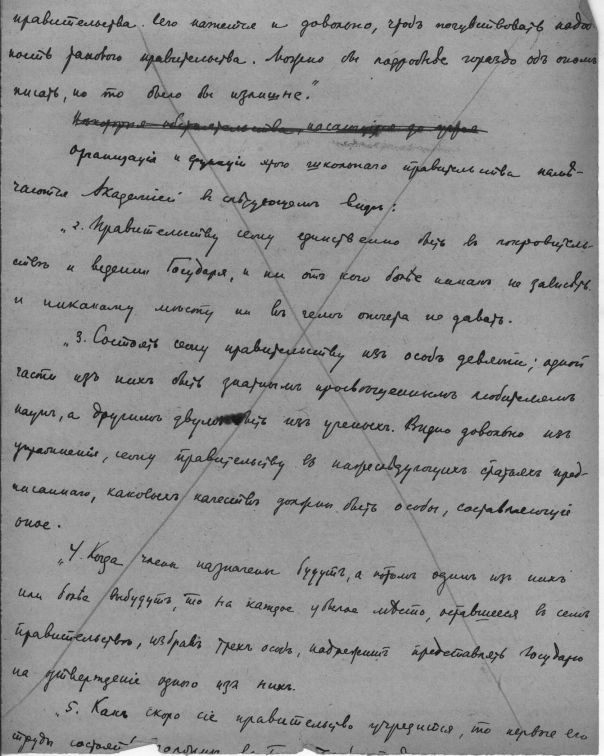 правительства. Сего кажется и довольно, чтобъ почувствовать надоб-
ность такового правительства. Можно бы подробнѣе гораздо объ ономъ
писать, но то было бы излишне."
касающіяся до
Организація и функціи этого школьнаго правительства намѣ-
чаются Академіей въ слѣдующемъ видѣ:
„2. Правительству сему единственно быть въ покровитель-
ствѣ и веденіи Государя, и ни отъ кого болѣе никакъ не зависѣть
и никакому мѣсту ни въ чемъ отчета не давать.
„3. Состоять сему правительству изъ особъ девяти; одной
части изъ нихъ быть знатнымъ просвѣщеннымъ любителемъ
наукъ, а другимъ двумъ быть изъ ученыхъ. Видно довольно изъ
сему правительству въ нижеслѣдующихъ статьяхъ пред-
писаннаго, каковыхъ качествъ должны быть особы, составляющіе
оное.
„4. Когда члены назначены будутъ, а потомъ одинъ изъ нихъ
или болѣе выбудутъ, то на каждое убылое мѣсто, оставшееся въ семъ
правительствѣ, избравъ трехъ особъ, надлежитъ представлять Государю
на утвержденіе одного изъ нихъ.
„5. Какъ скоро сіе правительство учредится, то первые его
труды состоять должны въ